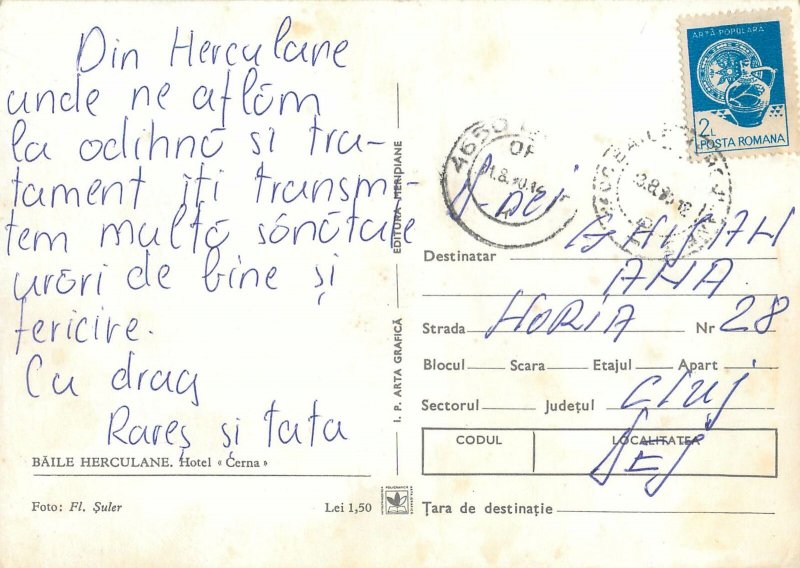 Din Herculane
unde ne aflăm
la odihnă si tra-
tament iti transmi-
tem multă sănătate
urări de bine și
fericire.
Cu drag
Rareș și tata
BĂILE HERCULANE. Hotel « Cerna »
Foto: Fl. Șuler
Lei 1,50
I. P. ARTA GRAFICĂ
EDITURA MERIDIANE
ARTĂ POPULARĂ
2L
POSTA ROMANA
4650
Destinatar
ANA
Strada HORIA Nr 28
Blocul Scara Etajul Apart
Sectorul Județul Cluj
CODUL
LOCALITATEA
DEJ
Țara de destinație